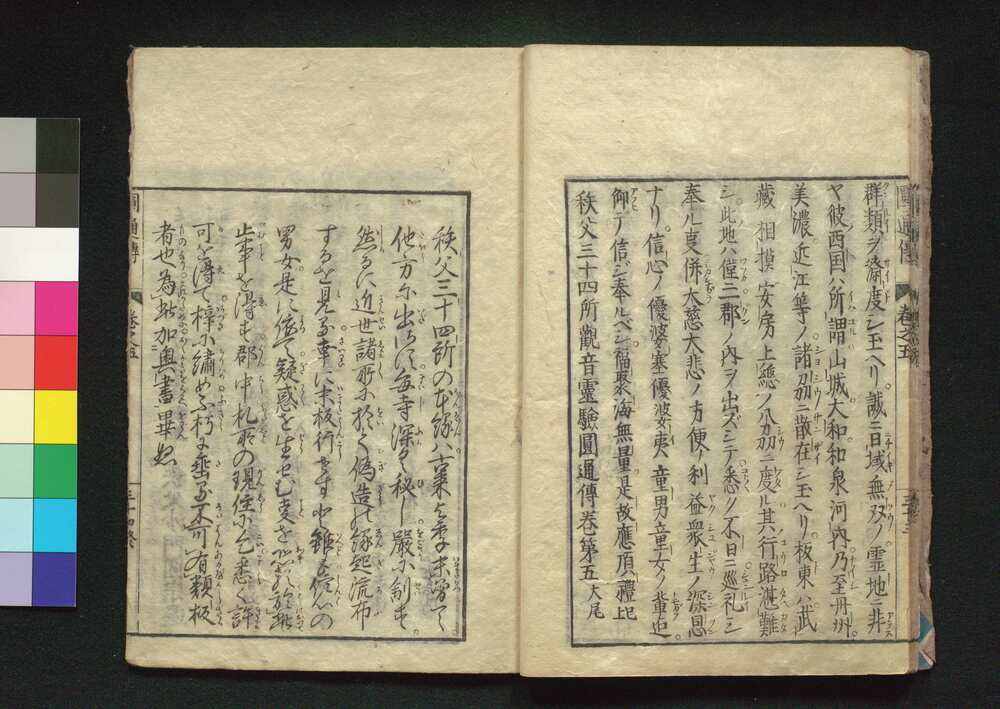 群類ヲ済度シ玉ヘリ。誠ニ日域無双ノ霊地ニ非
ヤ彼西国ハ所謂山城大和和泉河内乃至丹州
美濃近江等ノ諸刕ニ散在シ玉ヘリ坂東ハ武
蔵相摸安房上総ノ八刕ニ度ル其行路湛難
シ此地ハ僅ニ郡ノ内ヲ出ズシテ悉ク不日ニ巡礼シ
奉ル叓併大慈大悲ノ方便ノ利益衆生ノ深恩
ナリ。信心ノ優婆塞優婆夷童男童女ノ輩
仰テ信ジ奉ルベシ福聚海無量是故應頂禮
秩父三十四所觀音靈驗圓通傳巻第五大尾
圓通傳 巻之五
秩父三十四所の縁
他方に出さす毎寺深く秘し嚴に
然るに近世諸所に於て偽造の縁起流布
するを見る幸に未板行せすと雖も信心の
男女是に依て疑惑を生せむ叓を
止事を得す郡中札所の現住に乞悉く許
可を得て梓に繍め不朽に垂る不可有類板
者也為此加奥書畢ぬ
通傳 巻之五